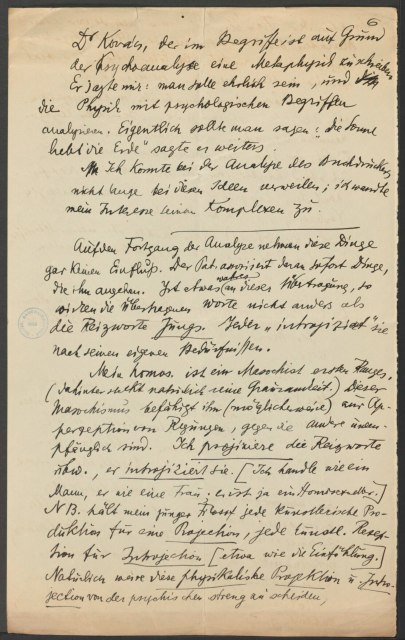 6
Dr Kovács, der im Begriffe ist auf Grund
der Psychoanalyse eine Metaphysik zu schreiben
Er sagte mir: man solle ehrlich sein, und
die Physik mit psychologischen Begriffen
analysieren. Eigentlich sollte man sagen: "die Sonne
liebt die Erde" sagte er weiters.
Ich konnte bei der Analyse des Buchdruckers
nicht lange bei diesen Ideen verweilen; ich wandte
mein Interesse seinen Komplexen zu.
Auf den Fortgang der Analyse nehmen diese Dinge
gar keinen Einfluß. Der Pat. associiert daran sofort Dinge,
die ihn angehen. Ist etwas wahres an dieser Übertragung, so
wirkten die übertragenen Worte nicht anders als
die Reizworte Jungs. Jeder "introjiziert" sie
nach seinen eigenen Bedürfnissen.
Mein homos. ist ein Masochist ersten Ranges,
(dahinter steckt natürlich seine Grausamkeit). Dieser
Masochismus befähigt ihn (möglicherweise) zur Ap-
perzeption von Regungen, gegen die andere unem-
pfänglich sind. Ich projiziere die Reizworte
usw., er introjiziert sie. [Ich handle wie ein
Mann, er wie eine Frau: er ist ja ein Homosexueller.]
NB. hält mein junger Freund jede künstlerische Pro-
duktion für eine Projection, jede künstl. Rezep-
tion für Introjection [etwa wie die Einfühlung.]
Natürlich wäre diese physikalische Projektion u. Intro-
jection von der psychischen streng zu scheiden,